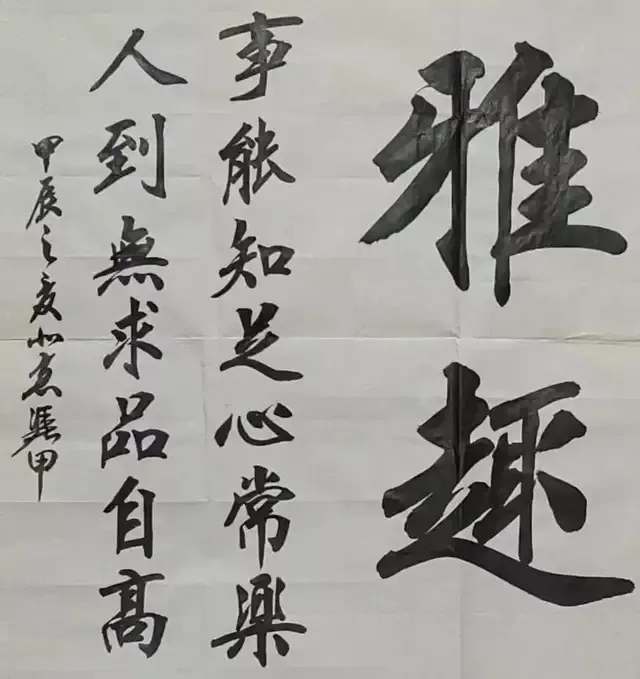 雅趣
事能知足心常樂
人到無求品自高
甲辰之夏